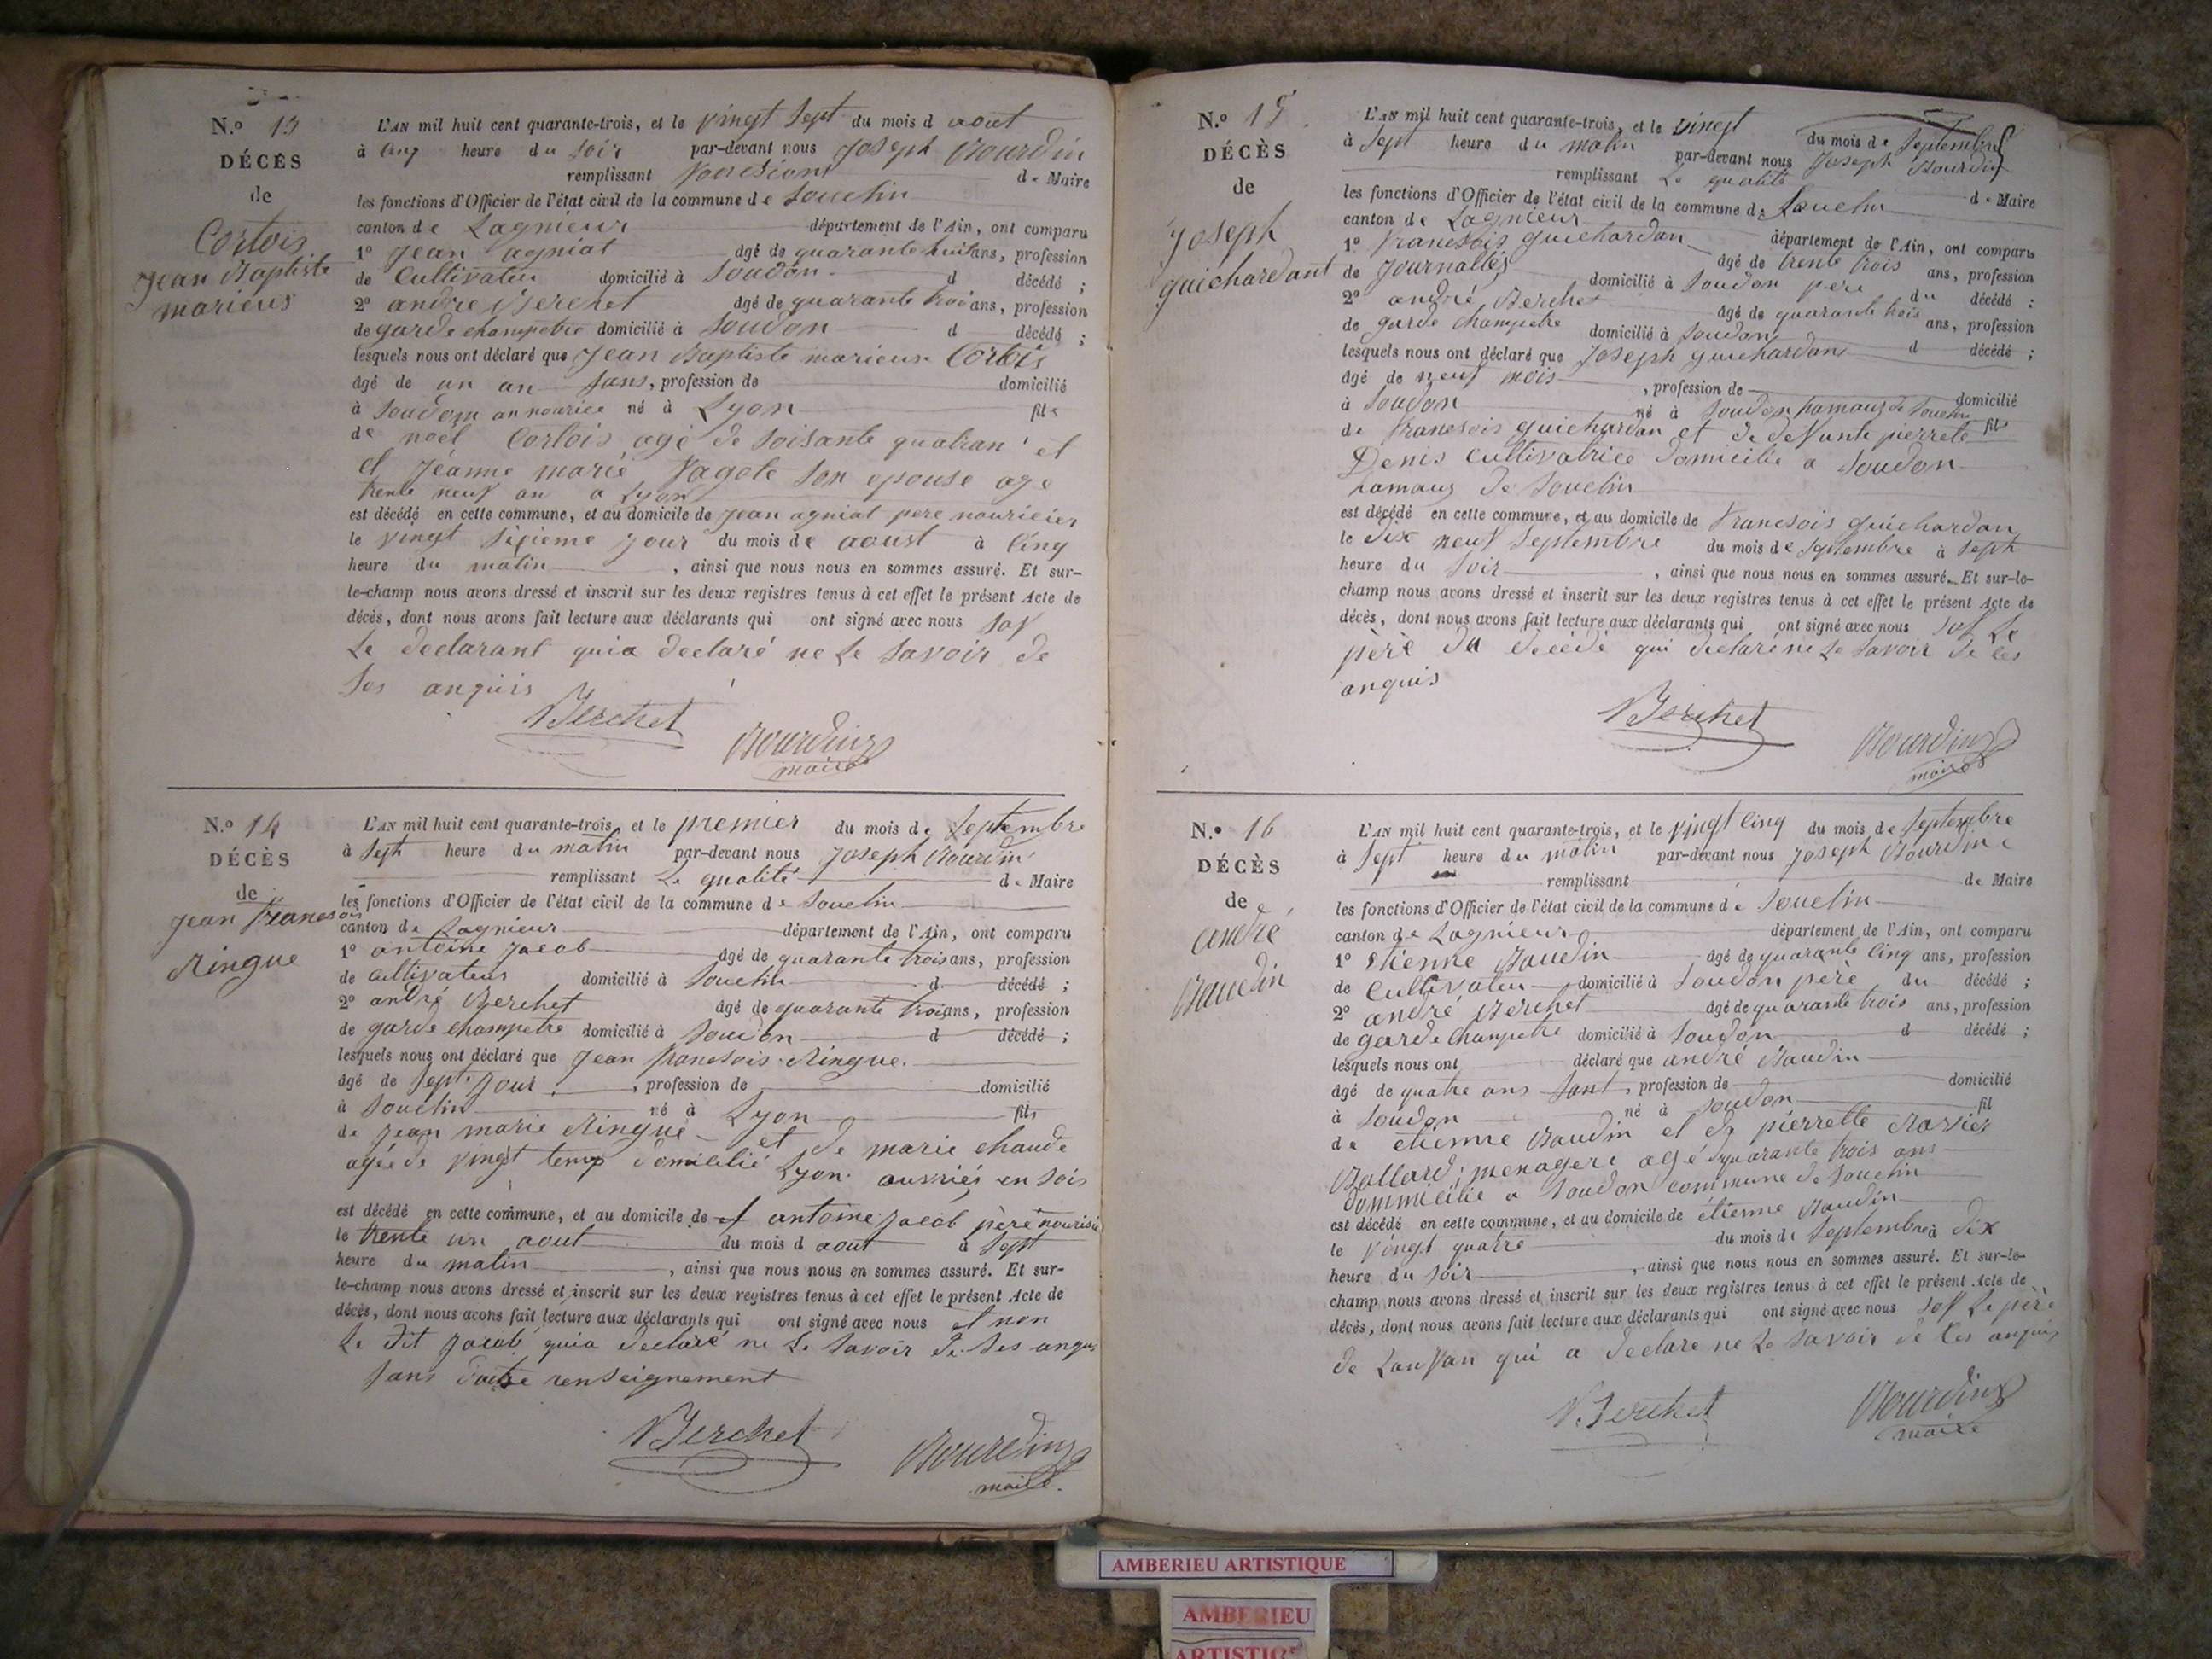 N.º 13
DÉCÈS
de
Cortois
Jean Baptiste
marieus
L'AN mil huit cent quarante-trois, et le vingt sept du mois d aout
à cinq heure du soir par-devant nous Joseph Bourdin
remplissant fonesions de Maire
les fonctions d'Officier de l'état civil de la commune de Souclin
canton de Lagnieur département de l'Ain, ont comparu
1º Jean agniat âgé de quarante huit ans, profession
de Cultivateu domicilié à Soudon d décédé ;
2º andre Berchet âgé de quarante trois ans, profession
de garde champetre domicilié à Soudon d décédé ;
lesquels nous ont déclaré que Jean Baptiste marieus Cortois
âgé de un an sans, profession de domicilié
à Soudon an nourice né à Lyon fils
de noël Cortois agé de soisante quatran et
et Jéanne marie Vagote son epouse age
trente neuf an a Lyon
est décédé en cette commune, et au domicile de jean agniat pere nouricier
le vingt sixieme jour du mois de aoust à cinq
heure du matin , ainsi que nous nous en sommes assuré. Et sur-
le-champ nous avons dressé et inscrit sur les deux registres tenus à cet effet le présent Acte de
décès, dont nous avons fait lecture aux déclarants qui ont signé avec nous sof
Le declarant quia declaré ne le savoir de
ses anquis
Berchet
Bourdin
maire
N.º 14
DÉCÈS
de
jean francsois
Ringue
L'AN mil huit cent quarante-trois, et le premier du mois de Septembre
à Sept heure du matin par-devant nous Joseph Bourdin
remplissant Le qualité de Maire
les fonctions d'Officier de l'état civil de la commune de Souclin
canton de Lagnieur département de l'Ain, ont comparu
1º antoine jacob âgé de quarante trois ans, profession
de cultivateur domicilié à Souclin d décédé ;
2º andré Berchet âgé de quarante trois ans, profession
de garde champetre domicilié à Soudon d décédé ;
lesquels nous ont déclaré que Jean francsois Ringue.
âgé de Sept jour , profession de domicilié
à Souclin né à Lyon fils
de jean marie Ringue et de marie chaude
agée de vingt domicilié Lyon ouvriés en sois
est décédé en cette commune, et au domicile de antoine jacob père nourisie
le trente un aout du mois d aout à Sept
heure du matin , ainsi que nous nous en sommes assuré. Et sur-
le-champ nous avons dressé et inscrit sur les deux registres tenus à cet effet le présent Acte de
décès, dont nous avons fait lecture aux déclarants qui ont signé avec nous et non
Le dit Jacob quia declaré ne le savoir de ses anquis
sans dautre renseignement
Berchet
Bourdin
maire.
N.º 15
DÉCÈS
de
joseph
guichardant
L'AN mil huit cent quarante-trois, et le vingt du mois de Septembre
à Sept heure du matin par-devant nous Joseph Bourdin
remplissant Le qualité de Maire
les fonctions d'Officier de l'état civil de la commune de Souclin
canton de Lagnieur département de l'Ain, ont comparu
1º francsois guichardan âgé de trente trois ans, profession
de journallés domicilié à Soudon pere du décédé ;
2º andré Berchet âgé de quarante trois ans, profession
de garde champetre domicilié à Soudon d décédé ;
lesquels nous ont déclaré que Joseph guichardan
âgé de neuf mois , profession de domicilié
à Soudon né à Soudon hamaus de Souclin fils
de francsois guichardan et de defunte pierrete
Denis cultivatrice domicilie a Soudon
hamaus de Souclin
est décédé en cette commune, et au domicile de francsois guichardan
le dix neuf Septembre du mois de Septembre à Sept
heure du soir , ainsi que nous nous en sommes assuré. Et sur-le-
champ nous avons dressé et inscrit sur les deux registres tenus à cet effet le présent Acte de
décès, dont nous avons fait lecture aux déclarants qui ont signé avec nous sof Le
père du décédé qui declaré ne le savoir de ces
anquis
Berchet
Bourdin
maire
N.º 16
DÉCÈS
de
andré
Baudin
L'AN mil huit cent quarante-trois, et le vingt cinq du mois de Septembre
à Sept heure du matin par-devant nous Joseph Bourdin
remplissant de Maire
les fonctions d'Officier de l'état civil de la commune de Souclin
canton de Lagnieur département de l'Ain, ont comparu
1º etienne Baudin âgé de quarante cinq ans, profession
de Cultivateu domicilié à Soudon père du décédé ;
2º andré Berchet âgé de quarante trois ans, profession
de garde champetre domicilié à Soudon d décédé ;
lesquels nous ont déclaré que andré Baudin
âgé de quatre ans sant, profession de domicilié
à Soudon né à Soudon fil
de etienne Baudin et de pierrette Ravier
Ballard menagere agé de quarante trois ans
dommicilie a Soudon commune de Souclin
est décédé en cette commune, et au domicile de étienne Baudin
le vingt quatre du mois de Septembre à dix
heure du soir , ainsi que nous nous en sommes assuré. Et sur-le-
champ nous avons dressé et inscrit sur les deux registres tenus à cet effet le présent Acte de
décès, dont nous avons fait lecture aux déclarants qui ont signé avec nous sof Le père
de Lanfan qui a declare ne le savoir de ces anquis
Berchet
Bourdin
maire
AMBERIEU ARTISTIQUE
AMBERIEU
ARTISTIQ